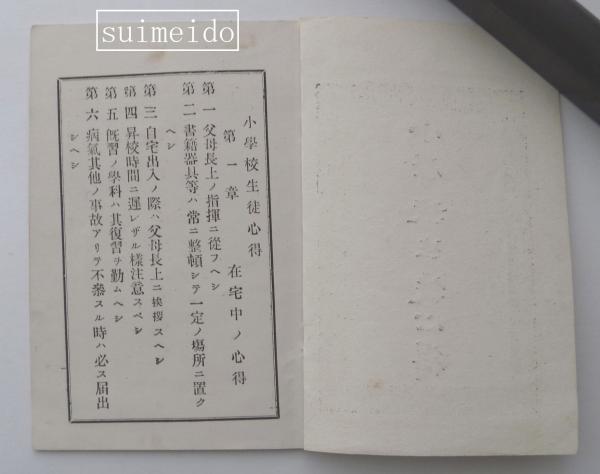 suimeido
小學校生徒心得
第一章 在宅中ノ心得
第一 父母長上ノ指揮ニ從フヘシ
第二 書籍器具等ハ常ニ整頓シテ一定ノ塲所ニ置ク
ヘシ
第三 自宅出入ノ際ハ父母長上ニ挨拶スヘシ
第四 昇校時間ニ遲レザル樣注意スベシ
第五 既習ノ學科ハ其復習ヲ勤ムヘシ
第六 病氣其他ノ事故アリテ不參スル時ハ必ス届出
ツヘシ